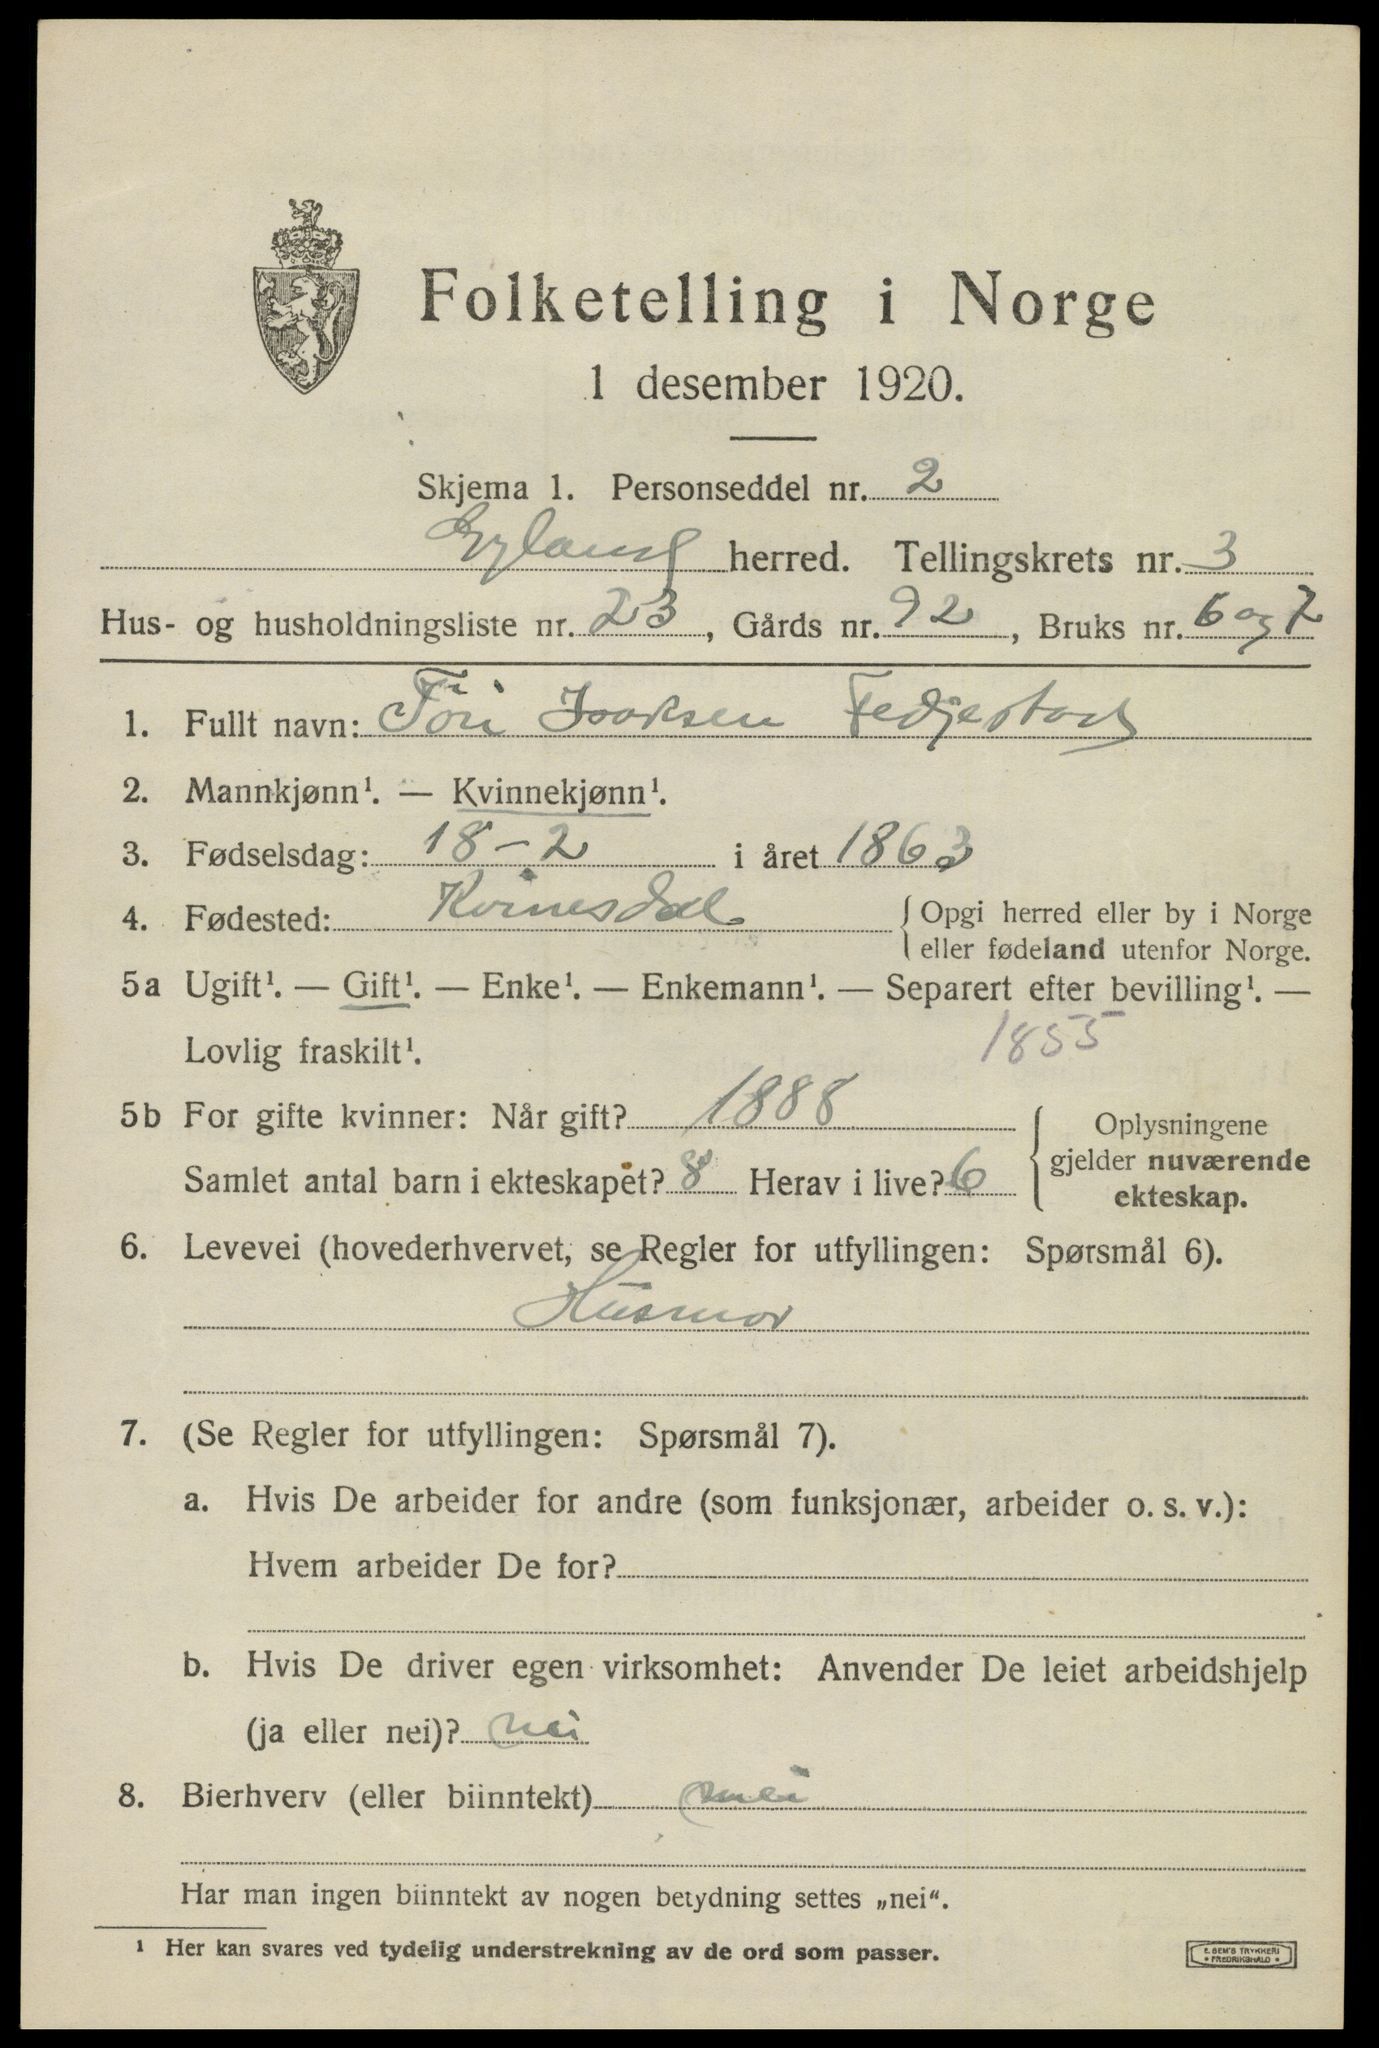 Folketelling i Norge
1 desember 1920.
Skjema 1. Personseddel nr. 2
Gyland herred. Tellingskrets nr. 3
Hus- og husholdningsliste nr. 23, Gårds nr. 92, Bruks nr. 6 og 7
1. Fullt navn: Töri Isaksen Fedjestad
2. Mannkjønn¹. — Kvinnekjønn¹.
3. Fødselsdag: 18-2 i året 1863
4. Fødested: Kvinesdal { Opgi herred eller by i Norge
eller fødeland utenfor Norge.
5a Ugift¹. — Gift¹. — Enke¹. — Enkemann¹. — Separert efter bevilling¹. —
Lovlig fraskilt¹. 1855
5b For gifte kvinner: Når gift? 1888
Samlet antal barn i ekteskapet? 8 Herav i live? 6
Oplysningene
gjelder nuværende
ekteskap.
6. Levevei (hovederhvervet, se Regler for utfyllingen: Spørsmål 6).
Husmor
7. (Se Regler for utfyllingen: Spørsmål 7).
a. Hvis De arbeider for andre (som funksjonær, arbeider o. s. v.):
Hvem arbeider De for?
b. Hvis De driver egen virksomhet: Anvender De leiet arbeidshjelp
(ja eller nei)? nei
8. Bierhverv (eller biinntekt) nei
Har man ingen biinntekt av nogen betydning settes „nei“.
¹ Her kan svares ved tydelig understrekning av de ord som passer.
E. SEM'S TRYKKERI
• FREDRIKSHALD •